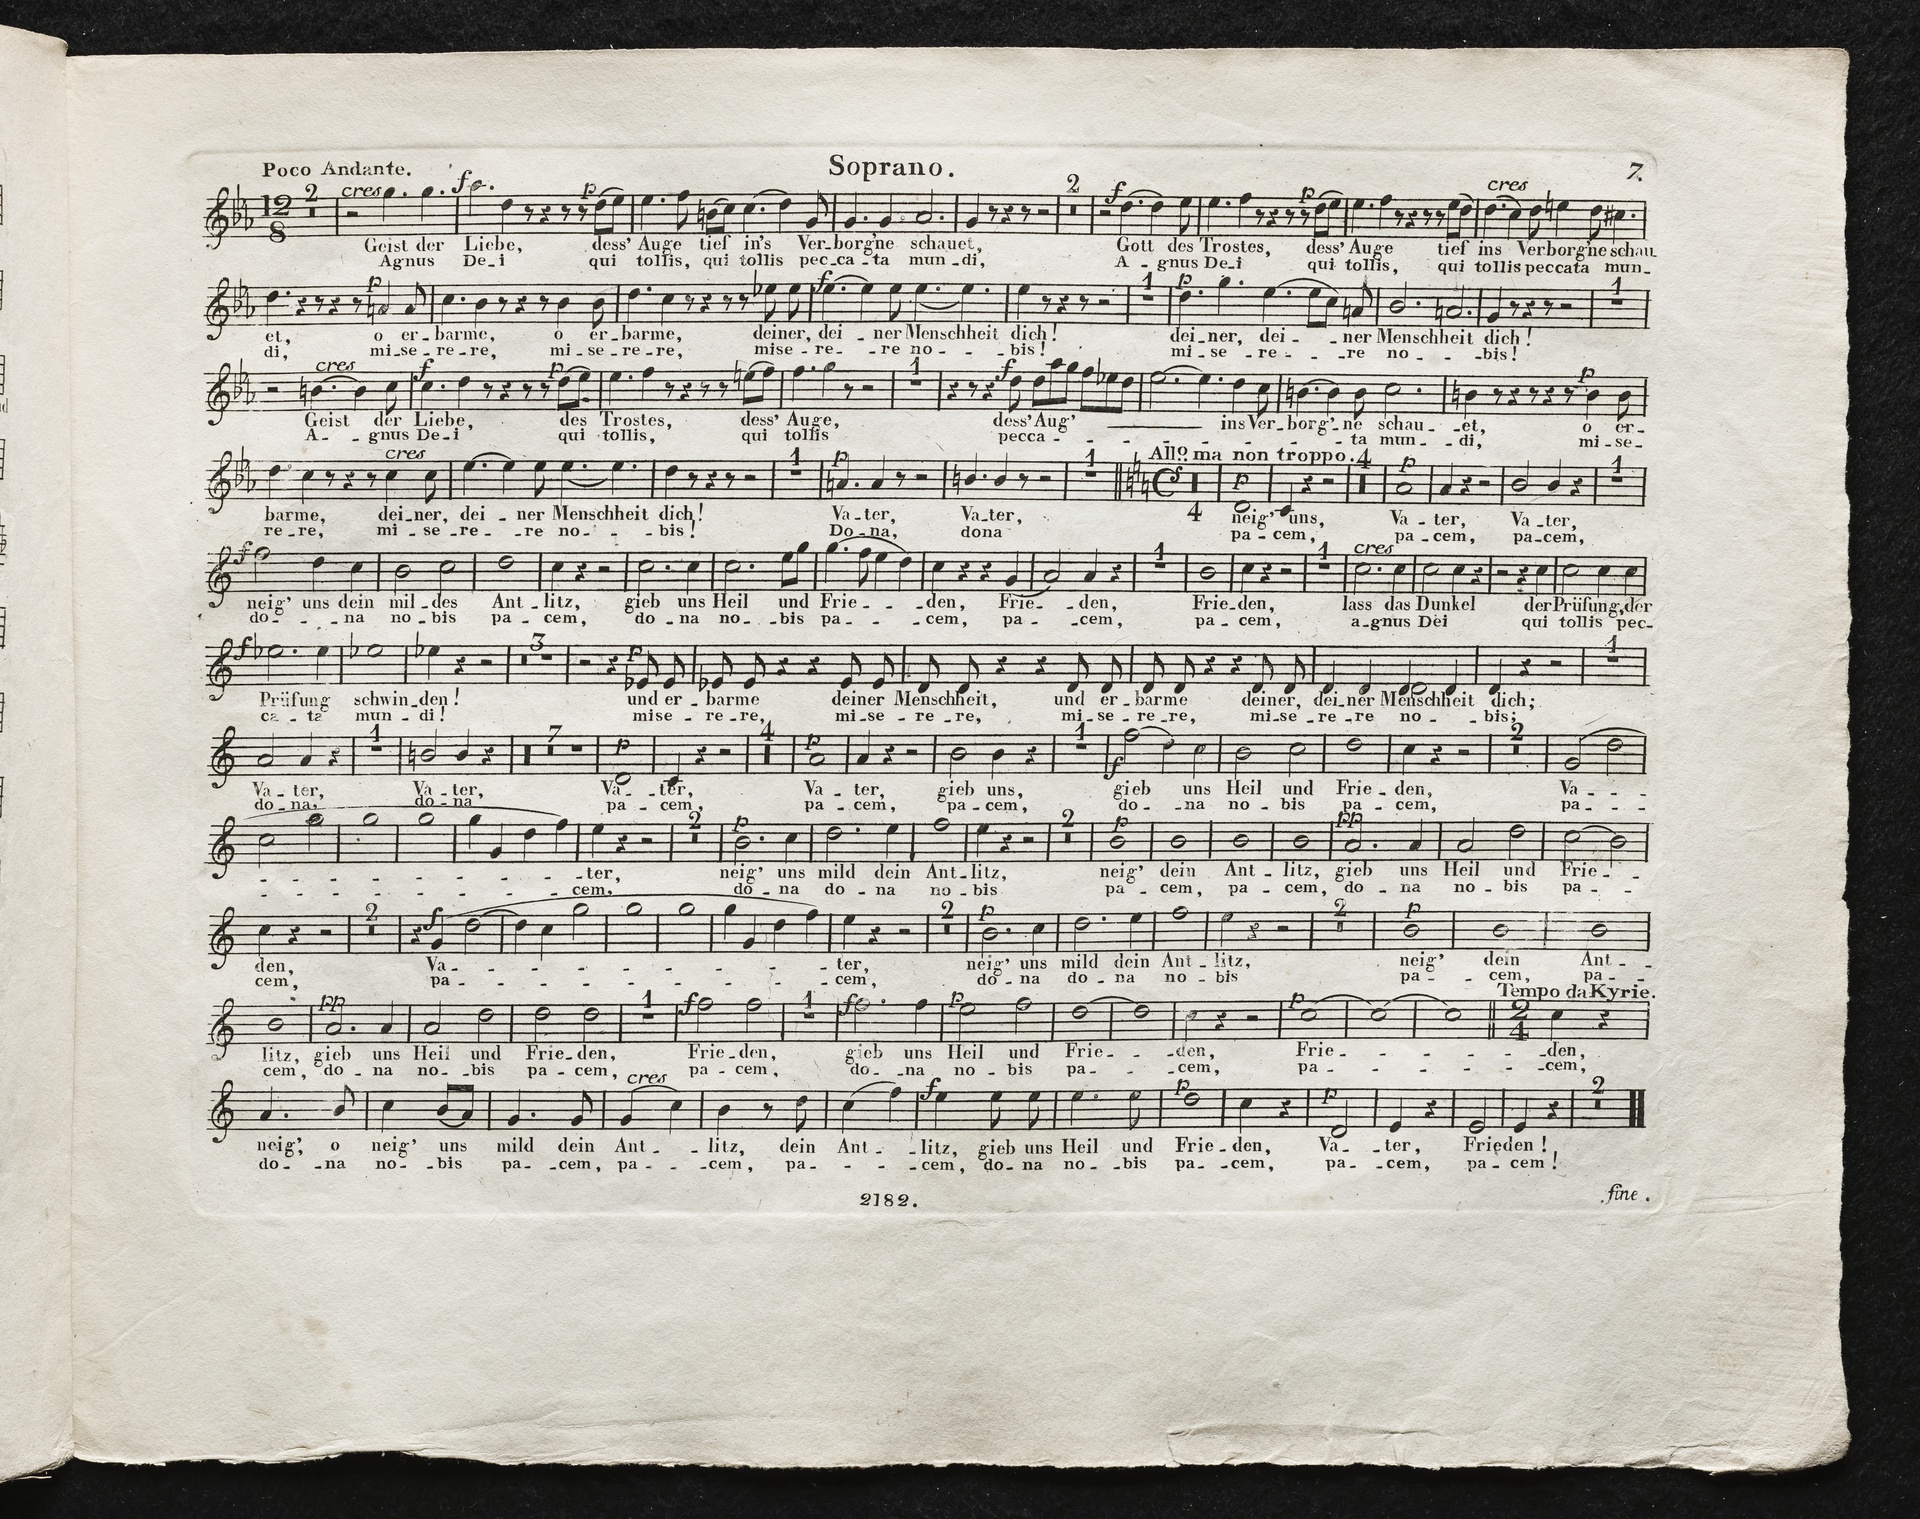 Poco Andante. Soprano. 7.
2 cres f p 2 f p cres
12 8
Geist der Liebe, dess' Auge tief in's Ver-borg'ne schauet, Gott des Trostes, dess' Auge tief ins Verborg'ne schau
Agnus De-i qui tollis, qui tollis pec-ca-ta mun-di, A-gnus De-i qui tollis, qui tollis peccata mun-
p f 1 p 1
et, o er-barme, o er-barme, deiner, dei-ner Menschheit dich! dei-ner, dei-ner Menschheit dich!
di, mi-se-re-re, mi-se-re-re, mise-re-re no-bis! mi-se-re-re no-bis!
cres f p 1 f p
Geist der Liebe, des Trostes, dess' Auge, dess' Aug' ins Ver-borg'-ne schau-et, o er-
A-gnus De-i qui tollis, qui tollis pecca-ta mun-di, mi-se-
cres 1 p 1 Allo. ma non troppo. 4 p 4 p 1
barme, dei-ner, dei-ner Menschheit dich! Va-ter, Va-ter, neig' uns, Va-ter, Va-ter,
re-re, mi-se-re-re no-bis! Do-na, dona pa-cem, pa-cem, pa-cem,
f 1 1 cres
neig' uns dein mil-des Ant-litz, gieb uns Heil und Frie-den, Frie-den, Frie-den, lass das Dunkel der Prüfung, der
do-na no-bis pa-cem, do-na no-bis pa-cem, pa-cem, pa-cem, a-gnus Dei qui tollis pec-
f 3 p 1
Prüfung schwin-den! und er-barme deiner Menschheit, und er-barme deiner, dei-ner Menschheit dich;
ca-ta mun-di! mise-re-re, mi-se-re-re, mi-se-re-re, mi-se-re-re no-bis;
1 7 p 4 p 1 f 2
Va-ter, Va-ter, Va-ter, Va-ter, gieb uns, gieb uns Heil und Frie-den, Va-
do-na, do-na pa-cem, pa-cem, pa-cem, do-na no-bis pa-cem, pa-
2 p 2 p pp
ter, neig' uns mild dein Ant-litz, neig' dein Ant-litz, gieb uns Heil und Frie-
cem, do-na do-na no-bis pa-cem, pa-cem, do-na no-bis pa-
2 f 2 p 2 p
den, Va-ter, neig' uns mild dein Ant-litz, neig' dein Ant-
cem, pa-cem, do-na do-na no-bis pa-cem, pa-
pp 1 f 1 f p p Tempo da Kyrie. 2 4
litz, gieb uns Heil und Frie-den, Frie-den, gieb uns Heil und Frie-den, Frie-den,
cem, do-na no-bis pa-cem, pa-cem, do-na no-bis pa-cem, pa-cem,
cres f p p 2
neig', o neig' uns mild dein Ant-litz, dein Ant-litz, gieb uns Heil und Frie-den, Va-ter, Frieden!
do-na no-bis pa-cem, pa-cem, pa-cem, do-na no-bis pa-cem, pa-cem, pa-cem!
2182. fine.